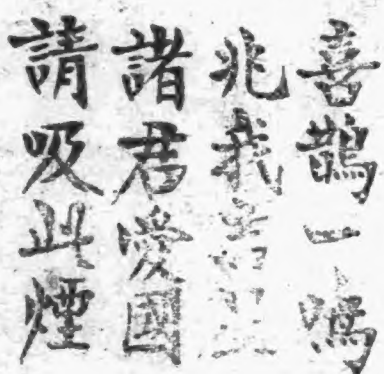 喜鵲一鳴
兆我吉祥
諸君愛國
請吸此煙